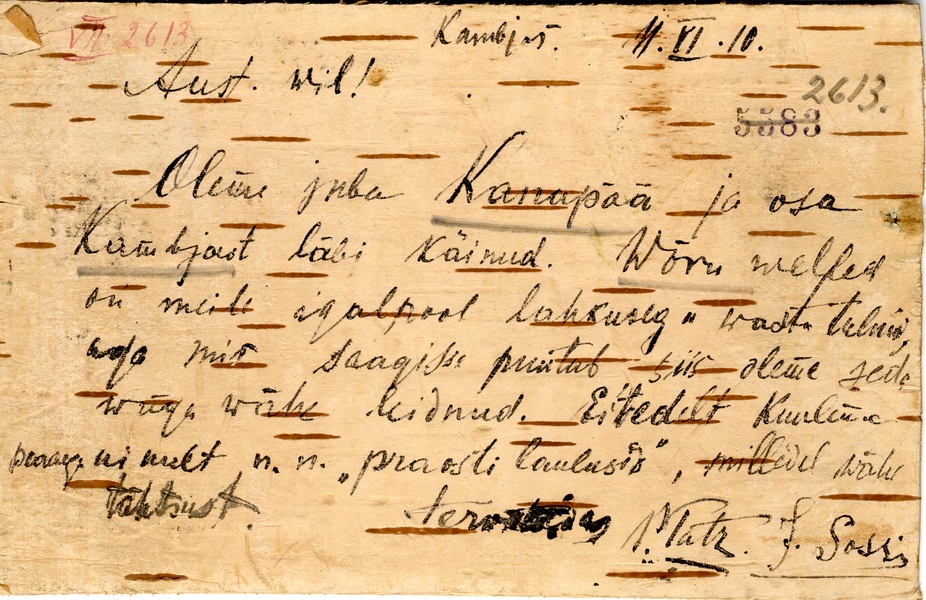 VII 2613
Kambjas. 11. VI. 10.
Aust. wil!
2613.
5583
Oleme juba Kanapää ja osa
Kambjast läbi käinud. Wõru welled
on meile igalpool lahkuseg. wastu tulnu,
aga mis saagisse puutub siis oleme seda
wäga wähe leidnud. Eitedelt kuuleme
peaaegu ainult n. n. "praosti laulusid", milledel wähe
tähtsust.
terwitades P. Tatz. J. Sossi